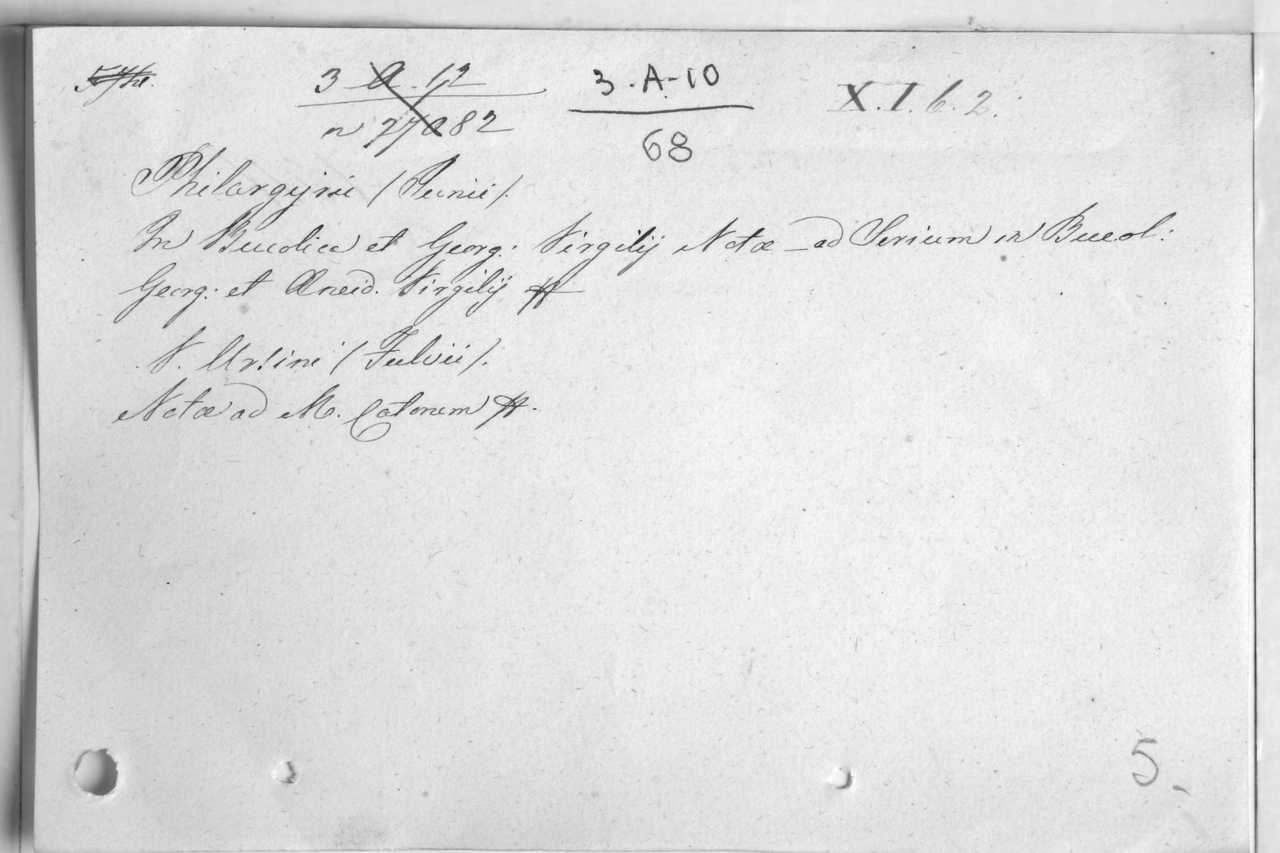 3 A. 12 3. A-10 X. I. 6. 2.
n 27082 68
Philargyrii (Junii).
In Bucolica et Georg: Virgilij Notæ ad Servium in Bucol:
Georg: et Æneid. Virgilij #
V. Ursini (Fulvii).
Notæ ad M. Catonem #.
5.